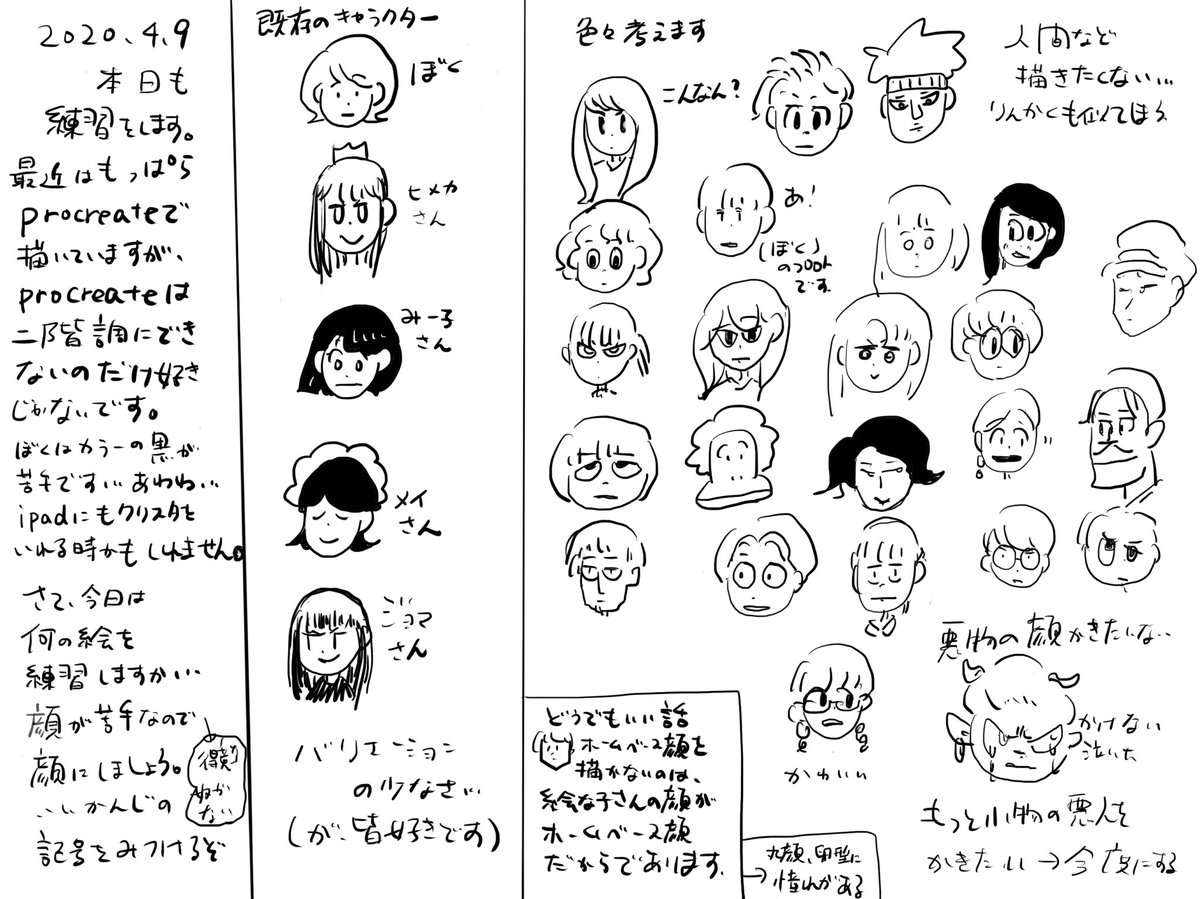 2020.4.9
本日も
練習をします。
最近はもっぱら
procreateで
描いていますが、
procreateは
二階調にでき
ないのだけ好き
じゃないです。
ぼくはカラーの黒が
苦手です…あわわ…
ipadにもクリスタを
いれる時かもしれません。
さて、今日は
何の絵を
練習しますか…
顔が苦手なので
顔にしましょう。
いいかんじの
記号をみつけるぞ
ぬか
ない
既存のキャラクター
ぼく
ヒメカ
さん
みーろ
さん
メイ
さん
ジョマ
さん
バリエーション
の少なさ…
(が、皆好きです)
色々考えます
こんなん?
人間など
描きたくない…
りんかくも似てほう
あ!
(ぼく)
です。
悪物の顔かきたいな
かけない
泣いた
かわいい
もっと小物の悪人を
かきたい→今度にする
どうでもいい話
ホームベース顔を
描かないのは、
絵な子さんの顔が
ホームベース顔
だからであります。
→丸顔、卵型に
憧れがある